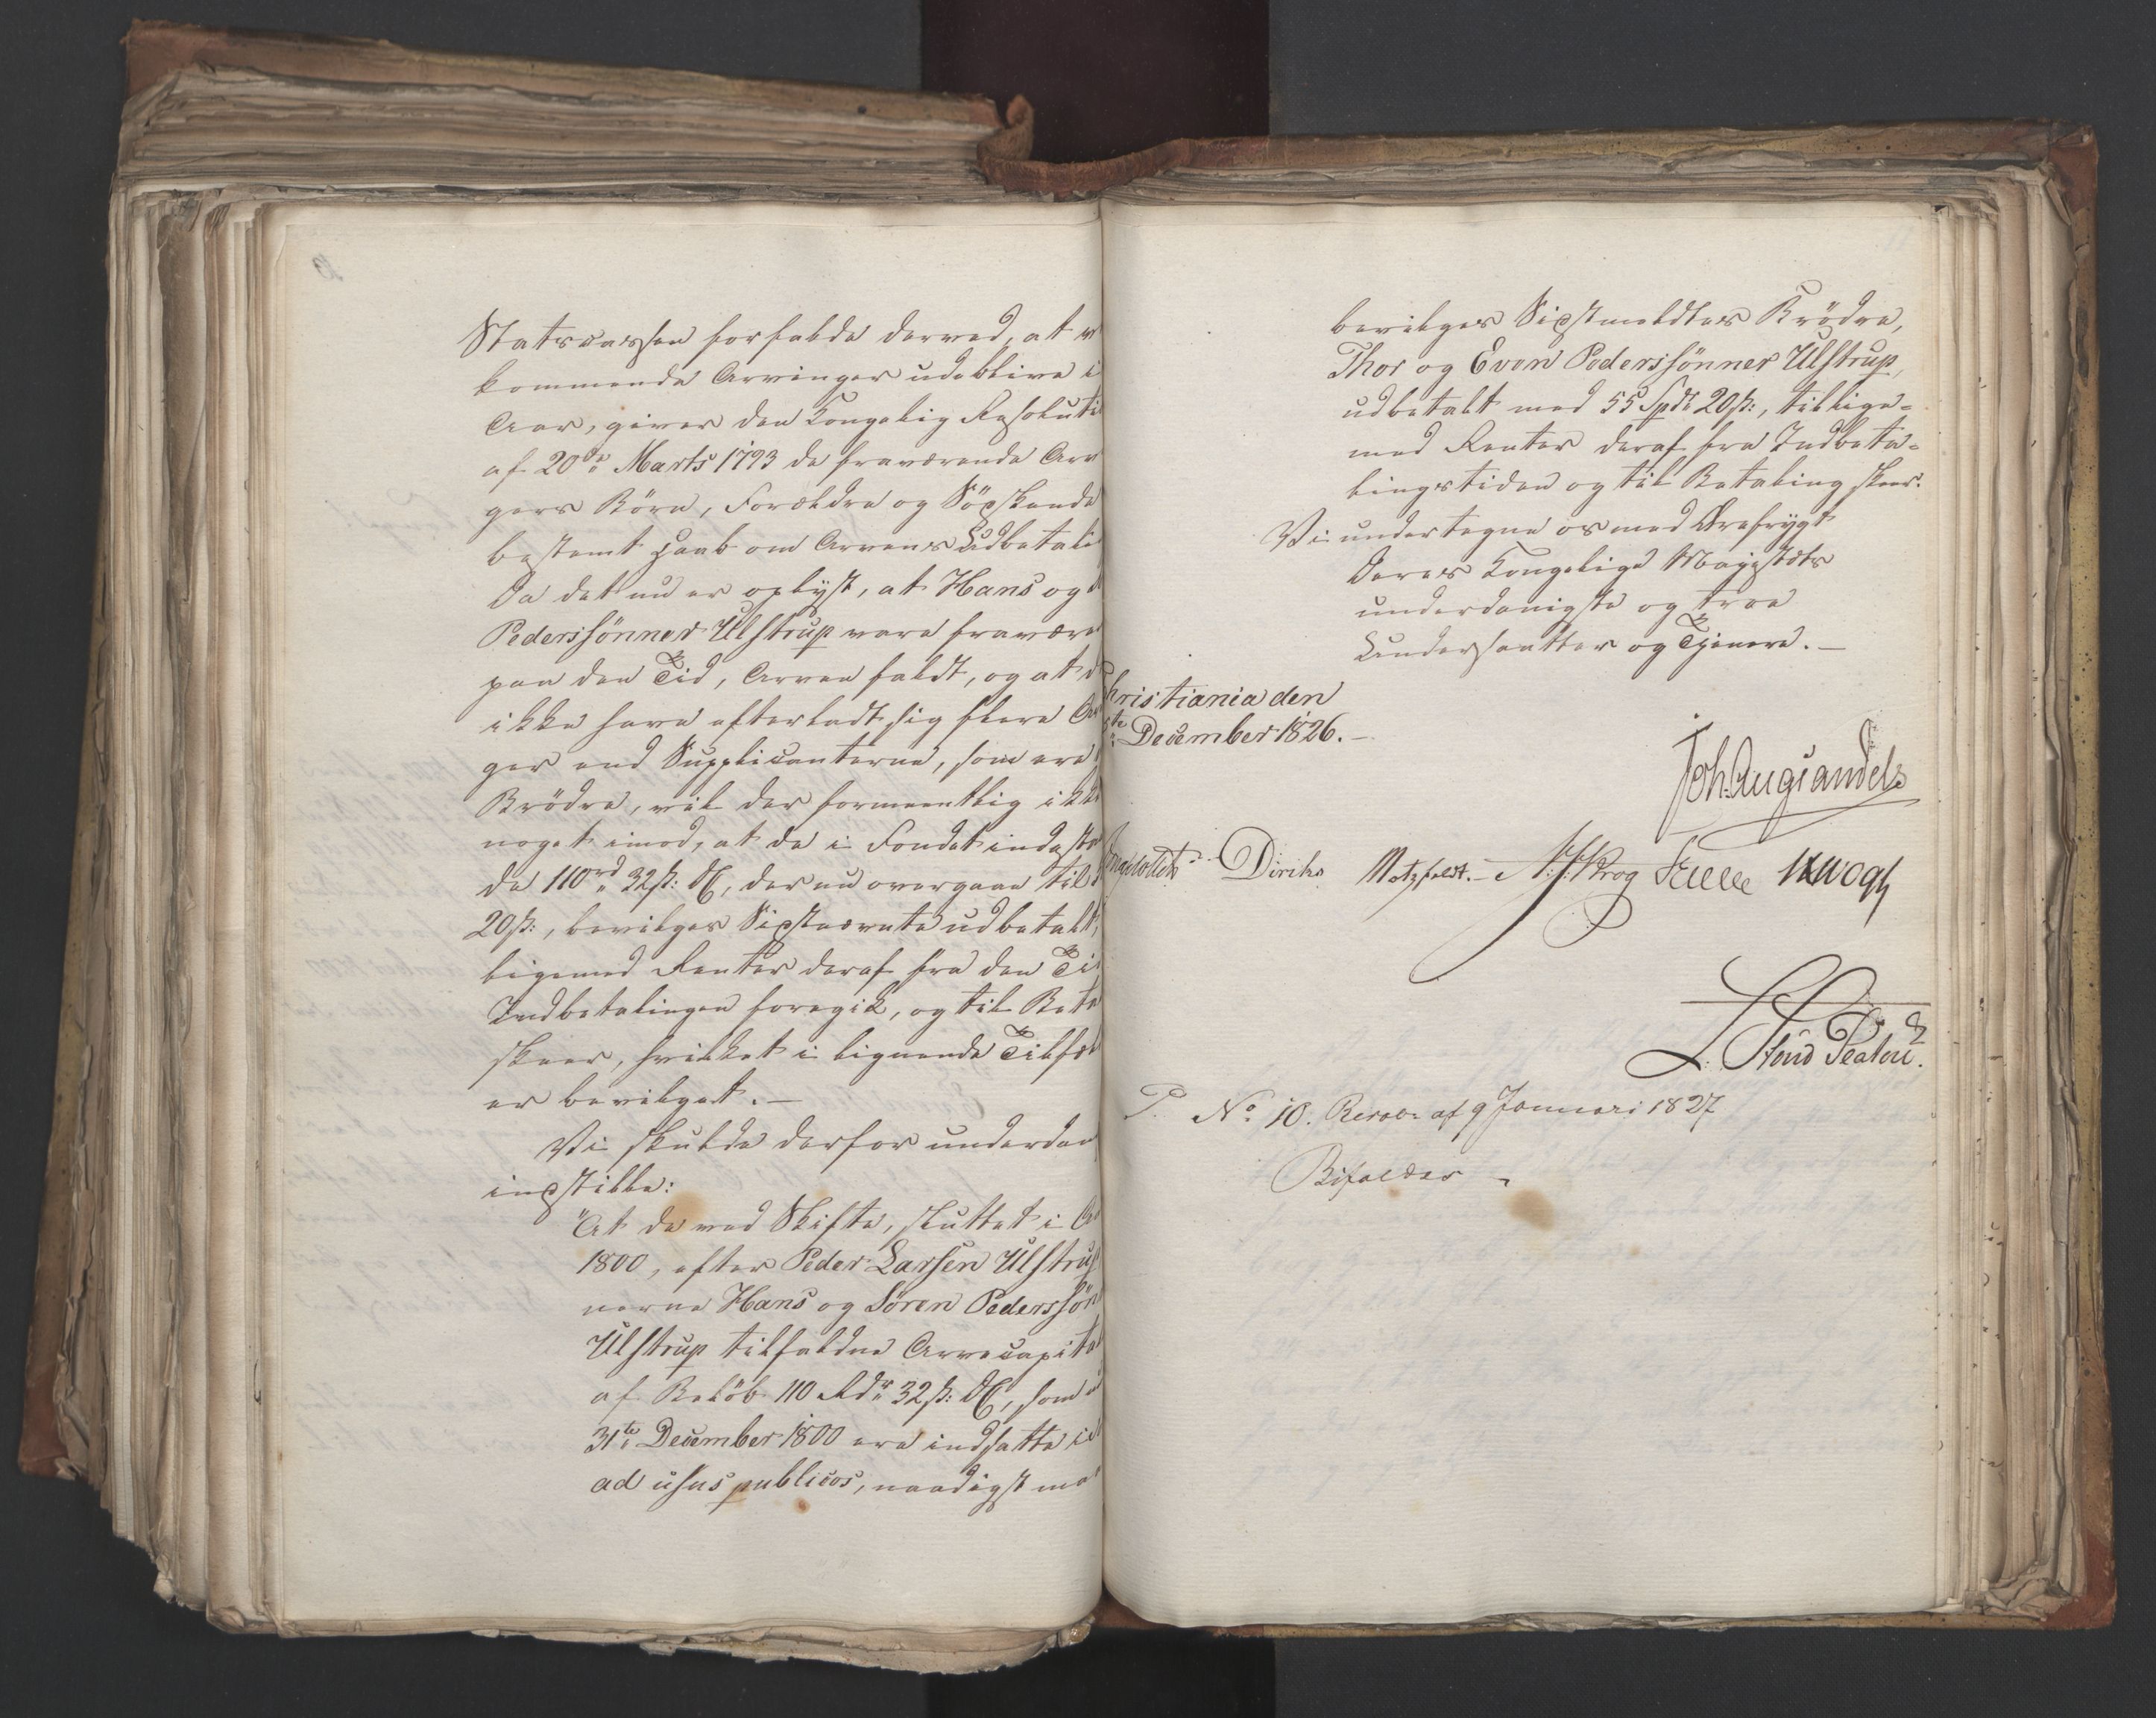 Statscassen forfalde derved, at v
kommende Arvinger udeblive i
Aar, giver den Kongelig Resoluti
af 20de Marts 1793 de fraværende Arv
gers Börn, Forældre og Södskende
bestemt Haab om Arvens Udbetali
Da det nu er oplyst, at Hans og
Pederssönner Ulstrup vare fravære
paa den Tid, Arven faldt, og at d
ikke have efterladt sig flere Ar
ger end Supplicanterne, som ere
Brödre, vil der formeentlig ikke
noget imod, at de i Fondet indesta
de 110rd 32 ß: DC, der nu overgaae til
20 ß:, bevilges Sidstnævnte udbetalt,
ligemed Renter deraf fra den Ti
Indbetalingen foregik, og til Beta
skeer, hvilket i lignende Tilfæl
er bevilget. —
Vi skulde derfor underdan
indstille:
"At de ved Skifte, sluttet i A
1800, efter Peder Larsen Ulstrup
nerne Hans og Sören Pederssön
Ulstrup tilfaldne Arvecapita
af Belöb 110 Rdr 32 ß: DC, som
31te December 1800 ere indsatte i
ad usus publicos, naadigst maa
bevilges Sidstmeldtes Brödre,
Thor og Even Pederssönner Ulstrup,
udbetalt med 55 Spdr 20 ß:, tillige-
med Renter deraf fra Indbeta-
lingstiden og til Betaling skeer.
Vi undertegne os med Ærefrygt
Deres Kongelige Majestæts
underdanigste og troe
Undersaatter og Tjenere. —
hristiania den
December 1826. —
Joh. Aug Sandels
Diriks Motzfeldt. — Krog
No 10. Resol. af 9 Januari 1827
Bifaldes